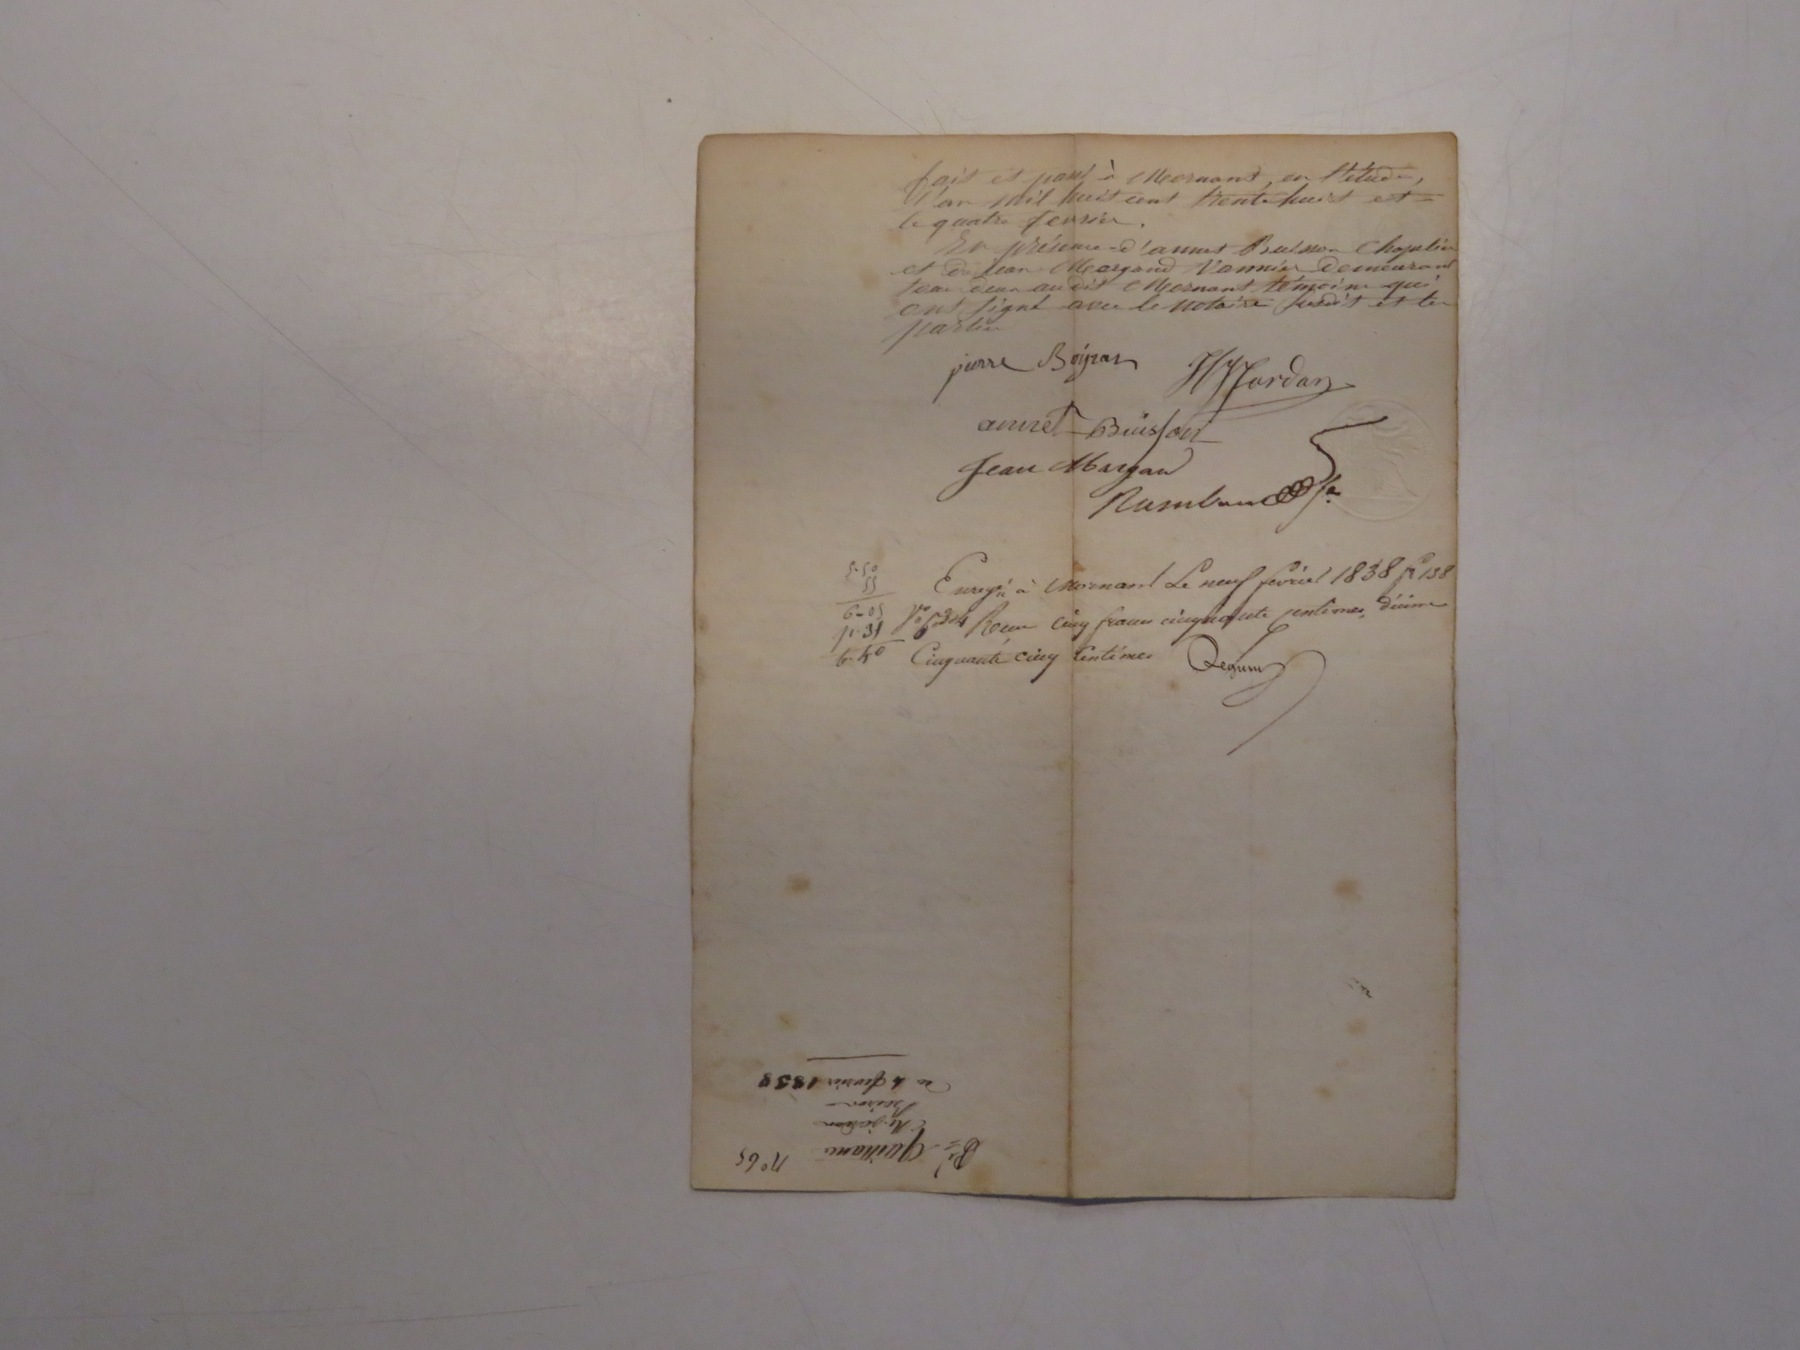 fait et passé à Mornant, en l'étude,
l'an mil huit cent trente huit et
le quatre fevrier.
En présence d'annet Buisson Chapelier
et de Jean Margand Vannier demeurant
tous deux audit Mornant témoins qui
ont signé avec le notaire susdit et les
parties
pierre Bojran
Jordan
annet Buisson
Jean Margand
5-50
55
6-05
Enregté à Mornant Le neuf février 1838 fo 138
Reçu cinq francs cinquante centimes, décime
Cinquante cinq Centimes
Du 4 fevrier 1838
Quittance
No 65